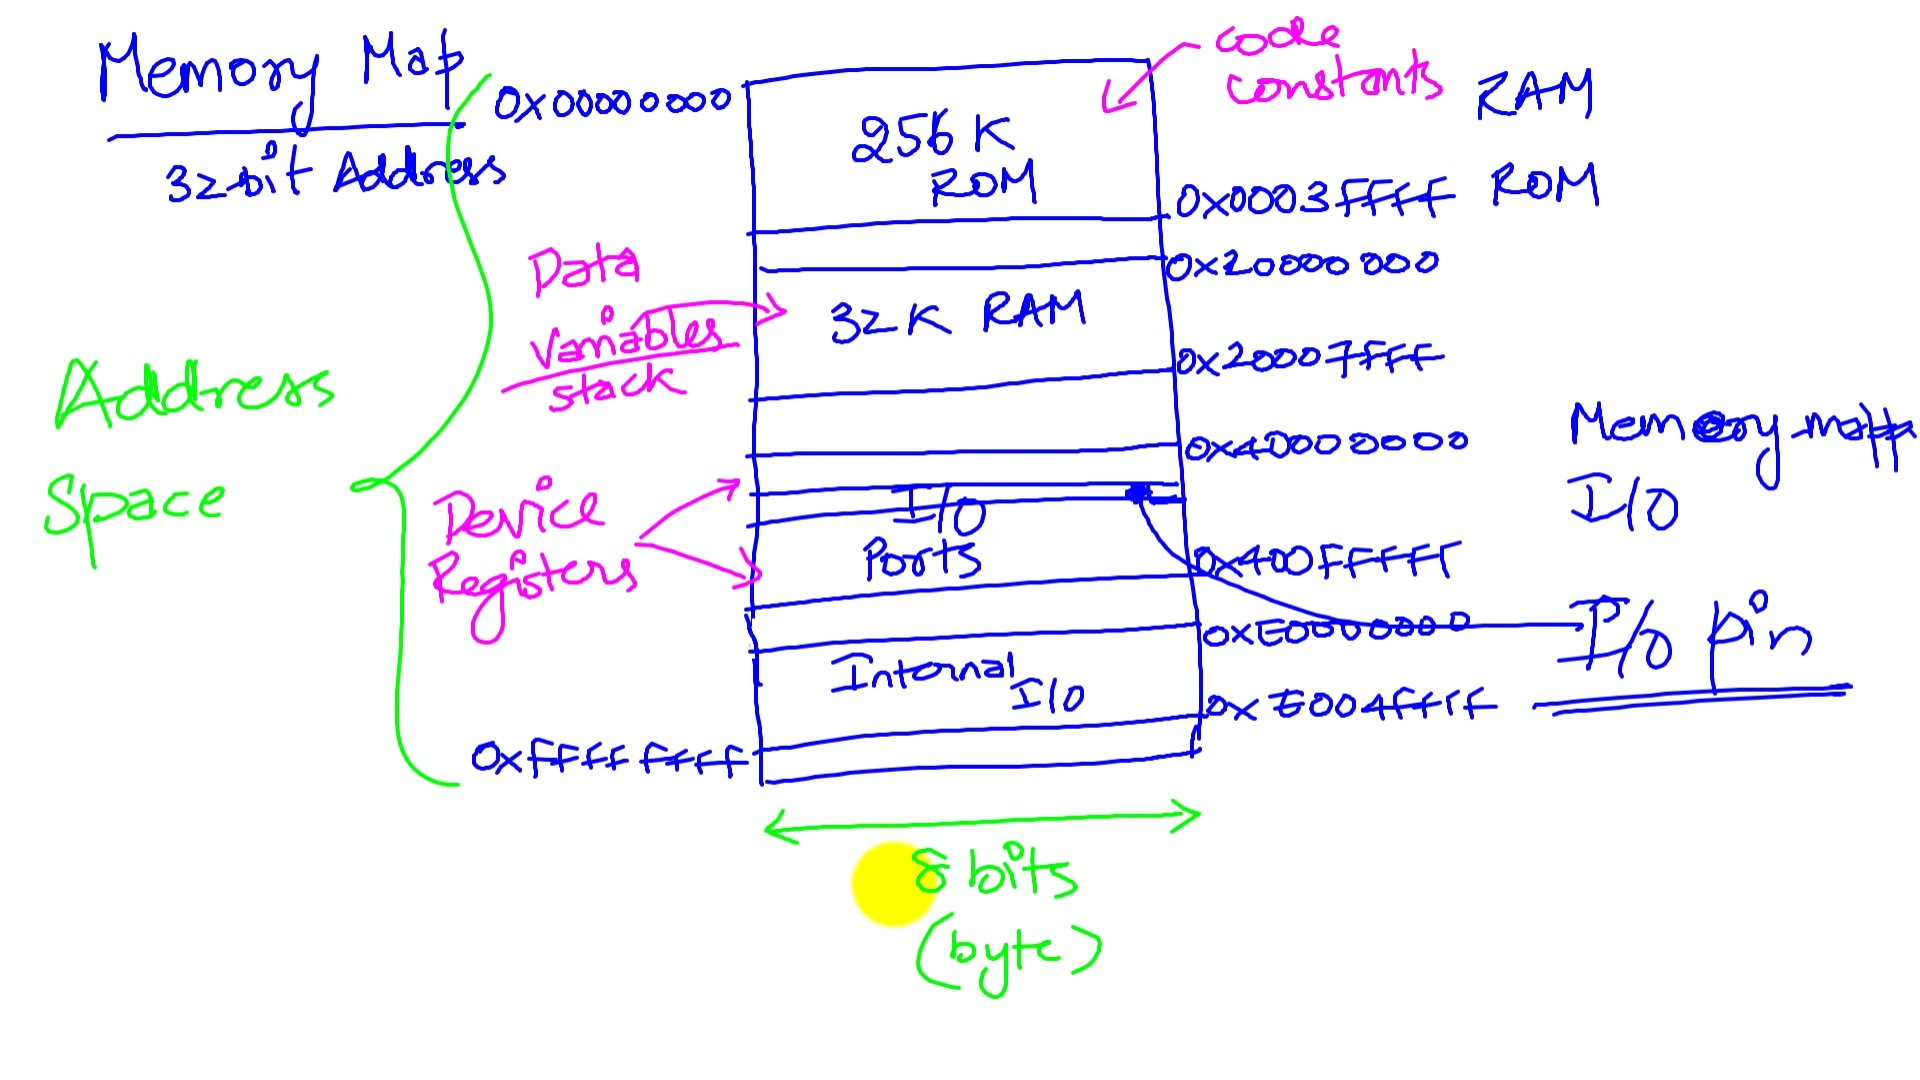 Memory Map
32-bit Address
0x00000000
256K
ROM
code
constants
RAM
ROM
0x0003FFFF
0x20000000
Data
Variables
stack
32K RAM
0x20007FFF
Address
Space
0x40000000
Memory-mapp
I/O
Device
Registers
I/O
Ports
0x400FFFFF
0xE0000000
I/O pin
Internal
I/O
0xE004FFFF
0xFFFFFFFF
8 bits
(byte)